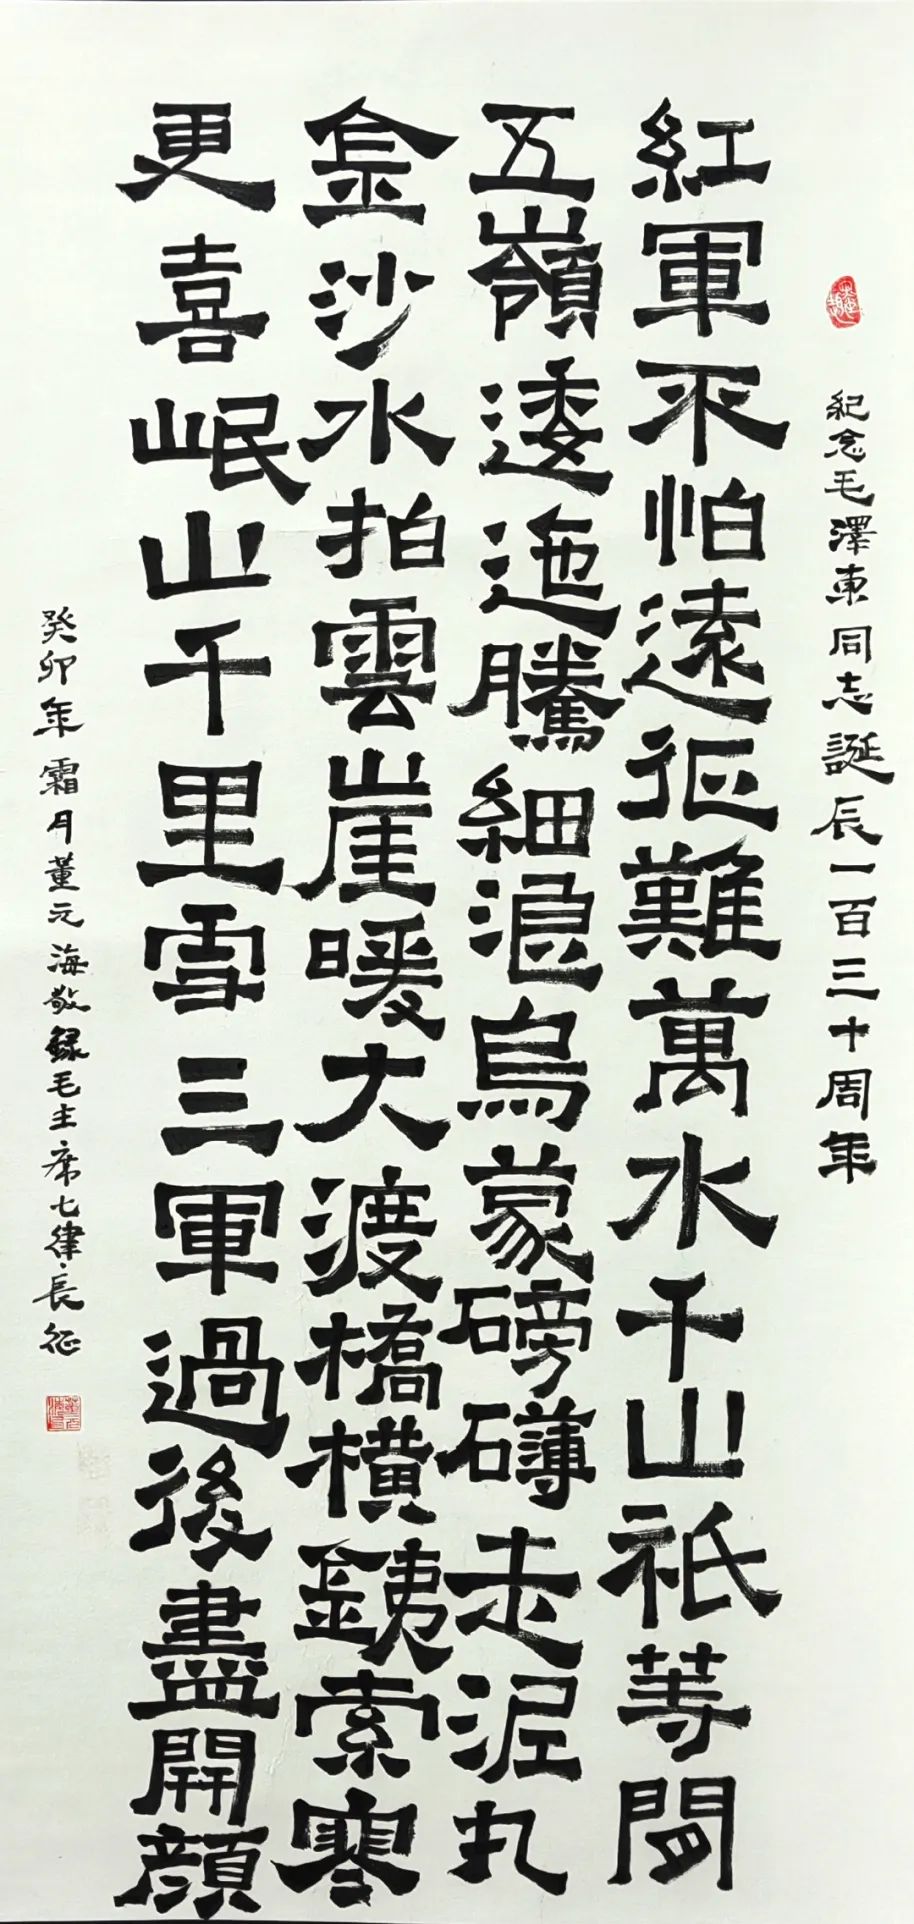 紀念毛澤東同志誕辰一百三十周年
紅軍不怕遠征難萬水千山祇等閒
五嶺逶迤騰細浪烏蒙磅礴走泥丸
金沙水拍雲崖暖大渡橋橫鐵索寒
更喜岷山千里雪三軍過後盡開顏
癸卯年霜月董元海敬錄毛主席七律·長征